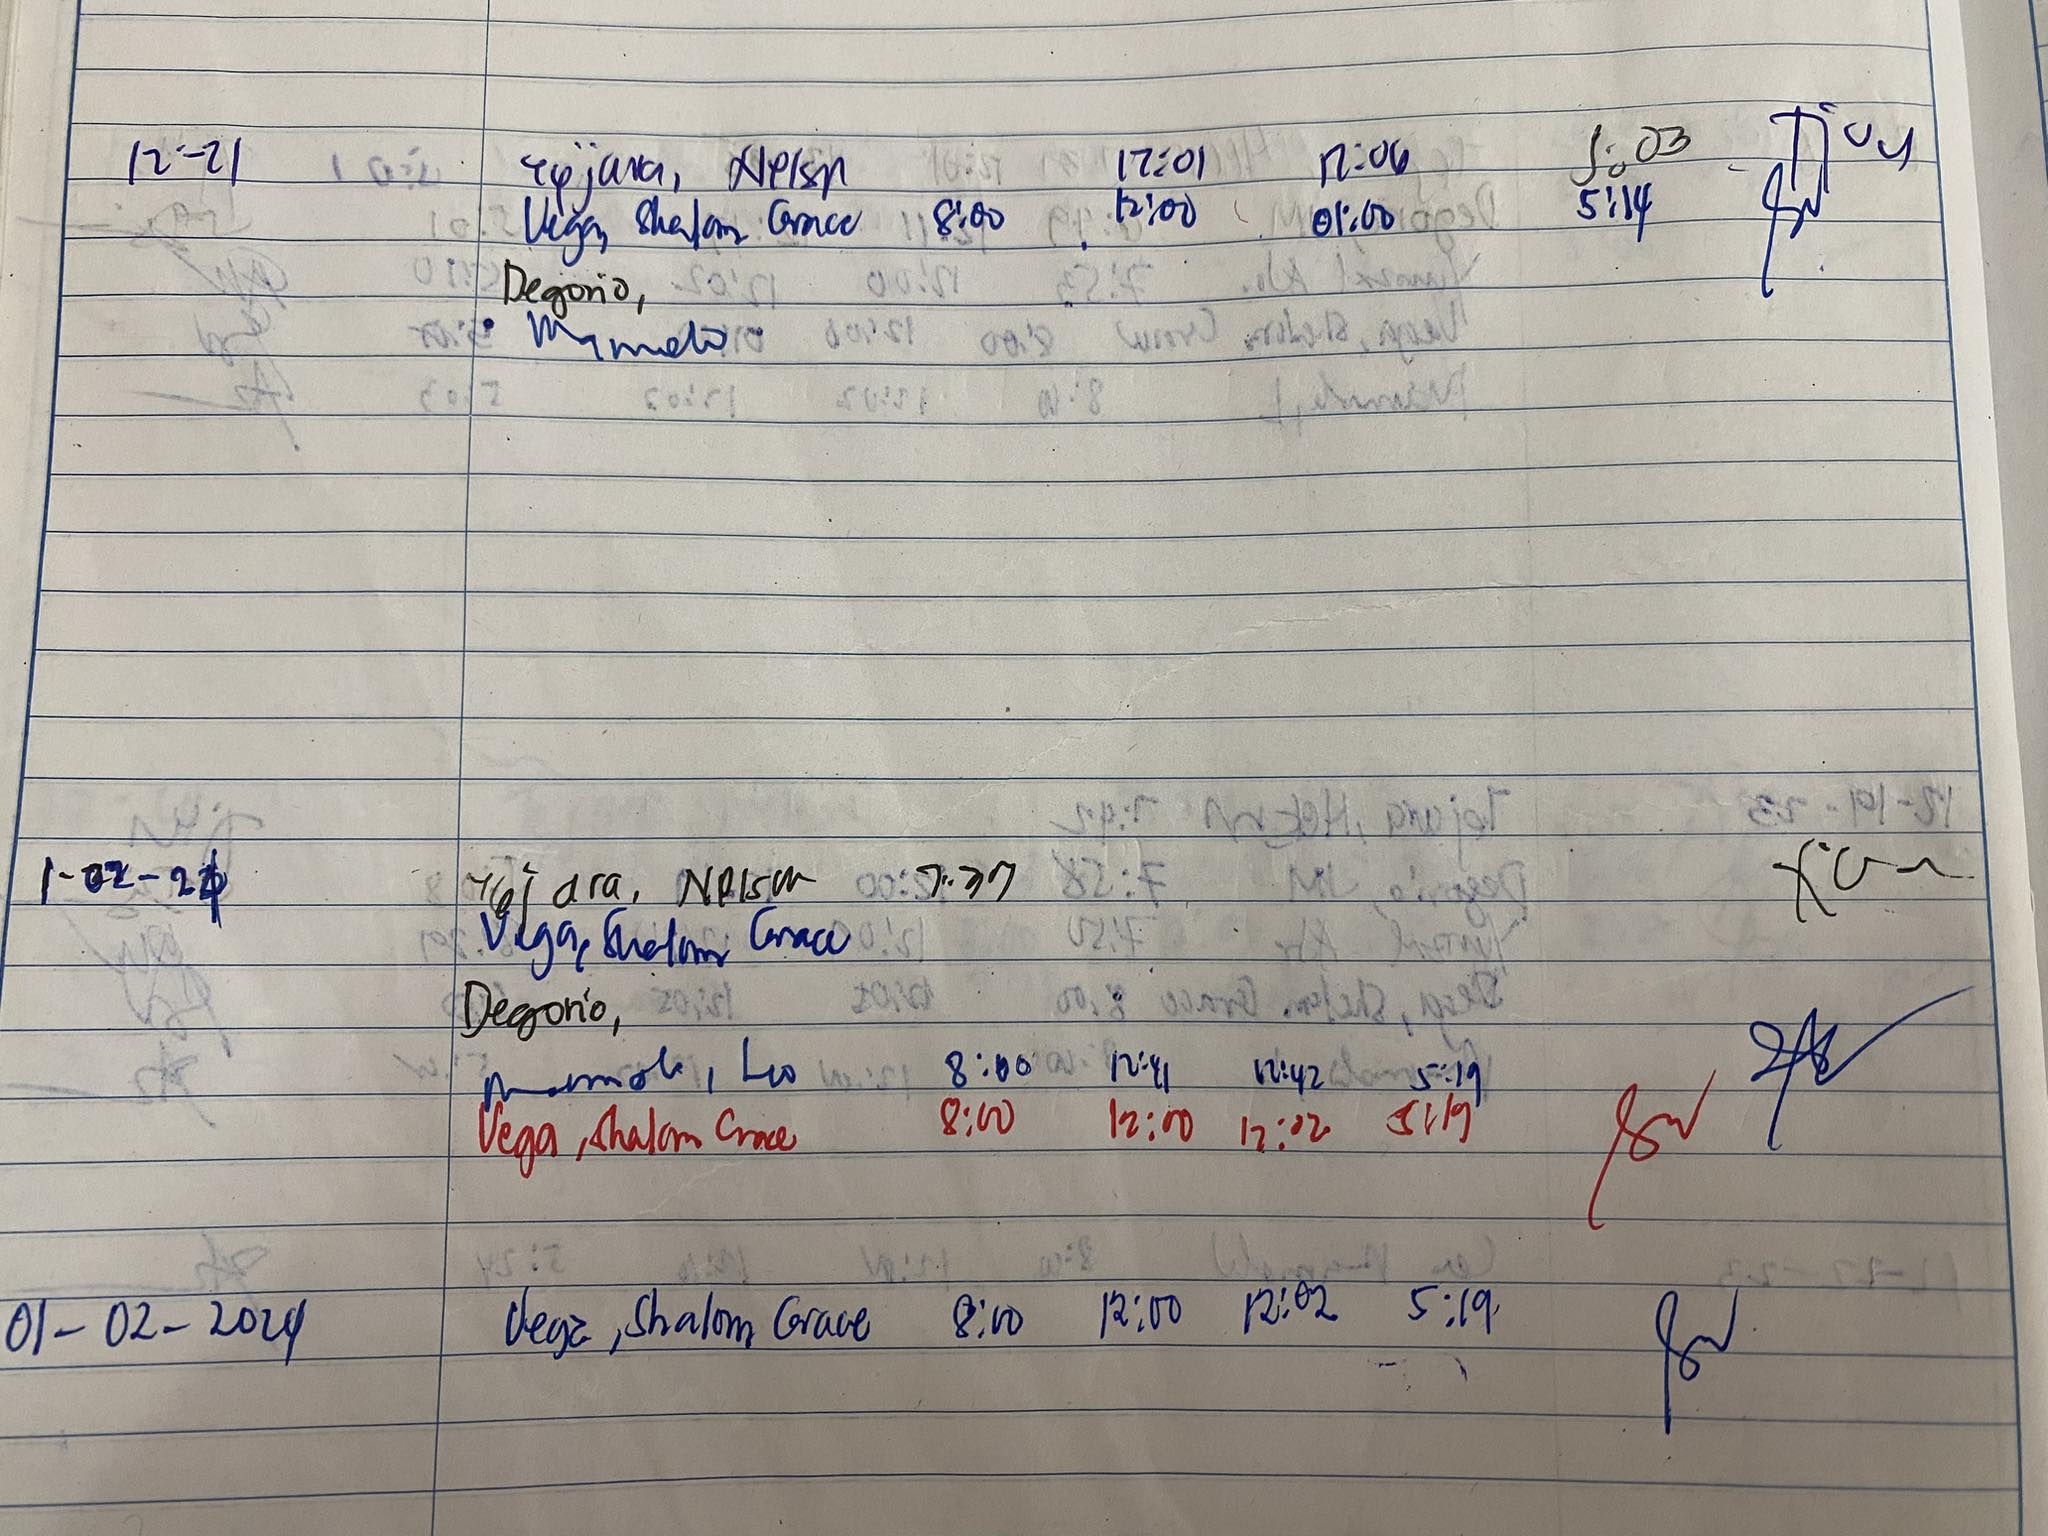 12-21 Tojara, Nelson 12:01 12:06 5:03
Vega, Shalom Grace 8:00 12:00 01:00 5:14
Degorio,
1-02-24 Tojara, Nelson 7:37
Vega, Shalom Grace
Degorio,
Leo 8:00 12:41 12:42 5:19
Vega, Shalom Grace 8:00 12:00 12:02 5:19
01-02-2024 Vega, Shalom Grace 8:00 12:00 12:02 5:19